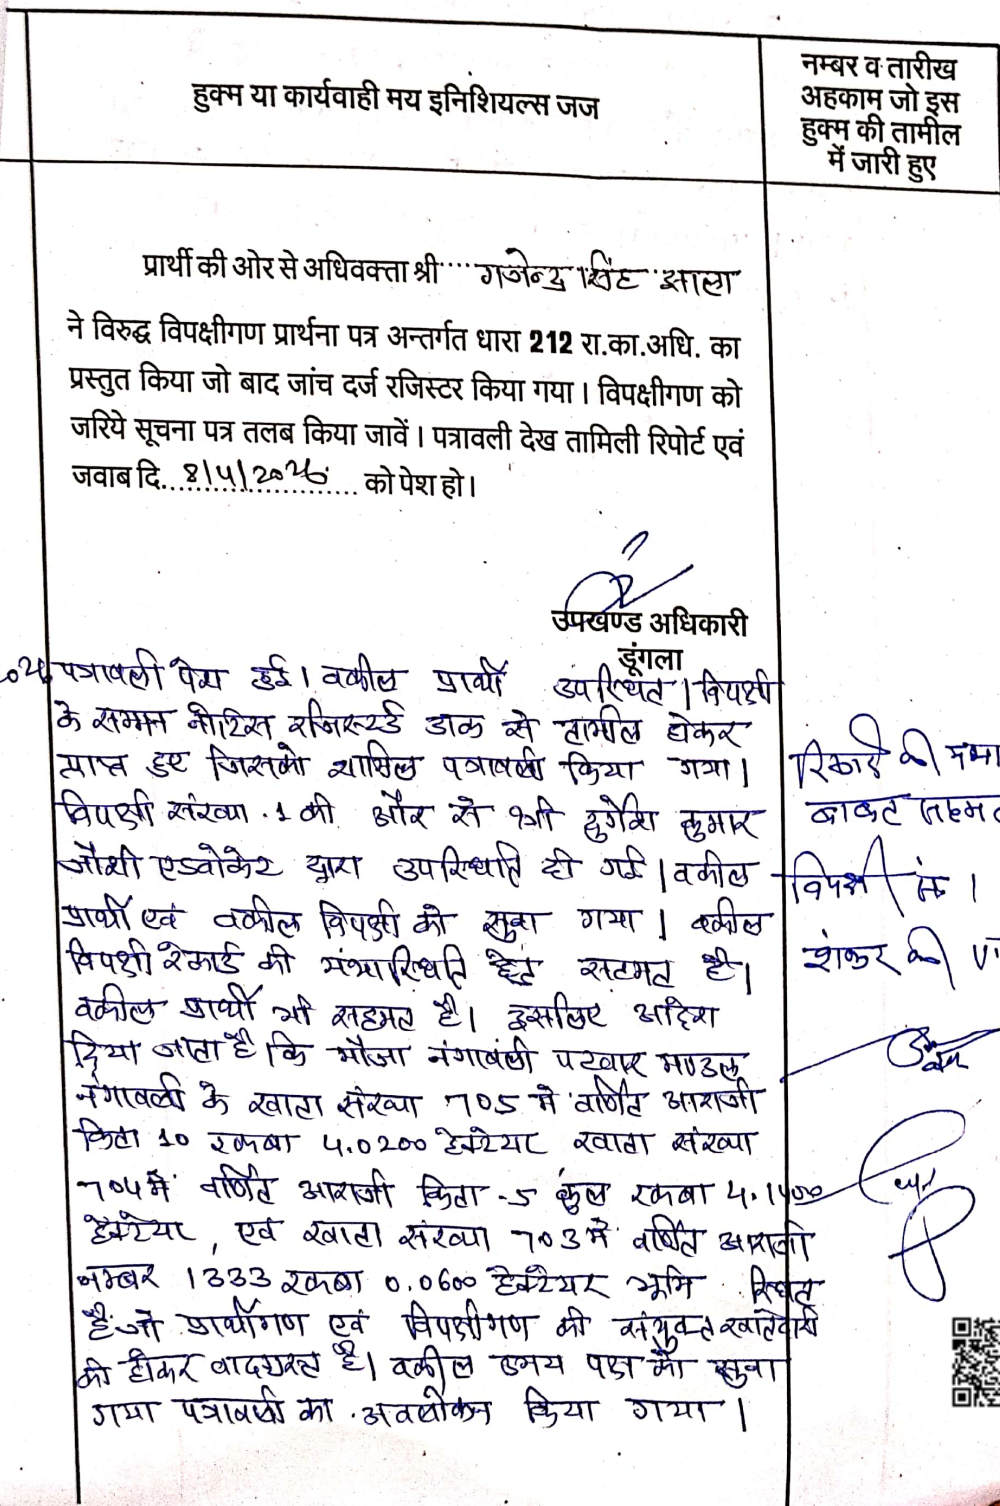 हुक्म या कार्यवाही मय इनिशियल्स जज
नम्बर व तारीख
अहकाम जो इस
हुक्म की तामील
में जारी हुए
प्रार्थी की ओर से अधिवक्ता श्री गजेन्द्र सिंह झाला
ने विरुद्ध विपक्षीगण प्रार्थना पत्र अन्तर्गत धारा 212 रा.का.अधि. का
प्रस्तुत किया जो बाद जांच दर्ज रजिस्टर किया गया। विपक्षीगण को
जरिये सूचना पत्र तलब किया जावें। पत्रावली देख तामिली रिपोर्ट एवं
जवाब दि. 8/4/2026 को पेश हो।
उपखण्ड अधिकारी
डूंगला
पत्रावली पेश हुई। वकील प्रार्थी उपस्थित। विपक्षी
के सम्मन नोटिस रजिस्टर्ड डाक से तामील होकर
प्राप्त हुए जिसको शामिल पत्रावली किया गया।
विपक्षी संख्या 1 की और से श्री कुमार
जौशी एडवोकेट द्वारा उपस्थिति दी गई। वकील
प्रार्थी एवं वकील विपक्षी को सुना गया। वकील
विपक्षी रेकार्ड की यथास्थिति हेतु सहमत है।
वकील प्रार्थी भी सहमत है। इसलिए आदेश
दिया जाता है कि मौजा नंगावली पटवार मण्डल
नंगावली के खाता संख्या 705 में वर्णित आराजी
किता 10 रकबा 4.0200 हेक्टेयर खाता संख्या
704 में वर्णित आराजी किता -5 कुल रकबा 4.1400
हेक्टेयर, एवं खाता संख्या 703 में वर्णित आराजी
नम्बर 1333 रकबा 0.0600 हेक्टेयर भूमि स्थित
है जो प्रार्थीगण एवं विपक्षीगण की संयुक्त खातेदारी
की होकर वादग्रस्त है। वकील उभय पक्ष को सुना
गया पत्रावली का अवलोकन किया गया।
रिकार्ड की
बाबत सहमत
विपक्षी सं. 1
शंकर की